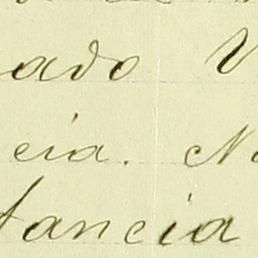 ado V
cia. N
tancia